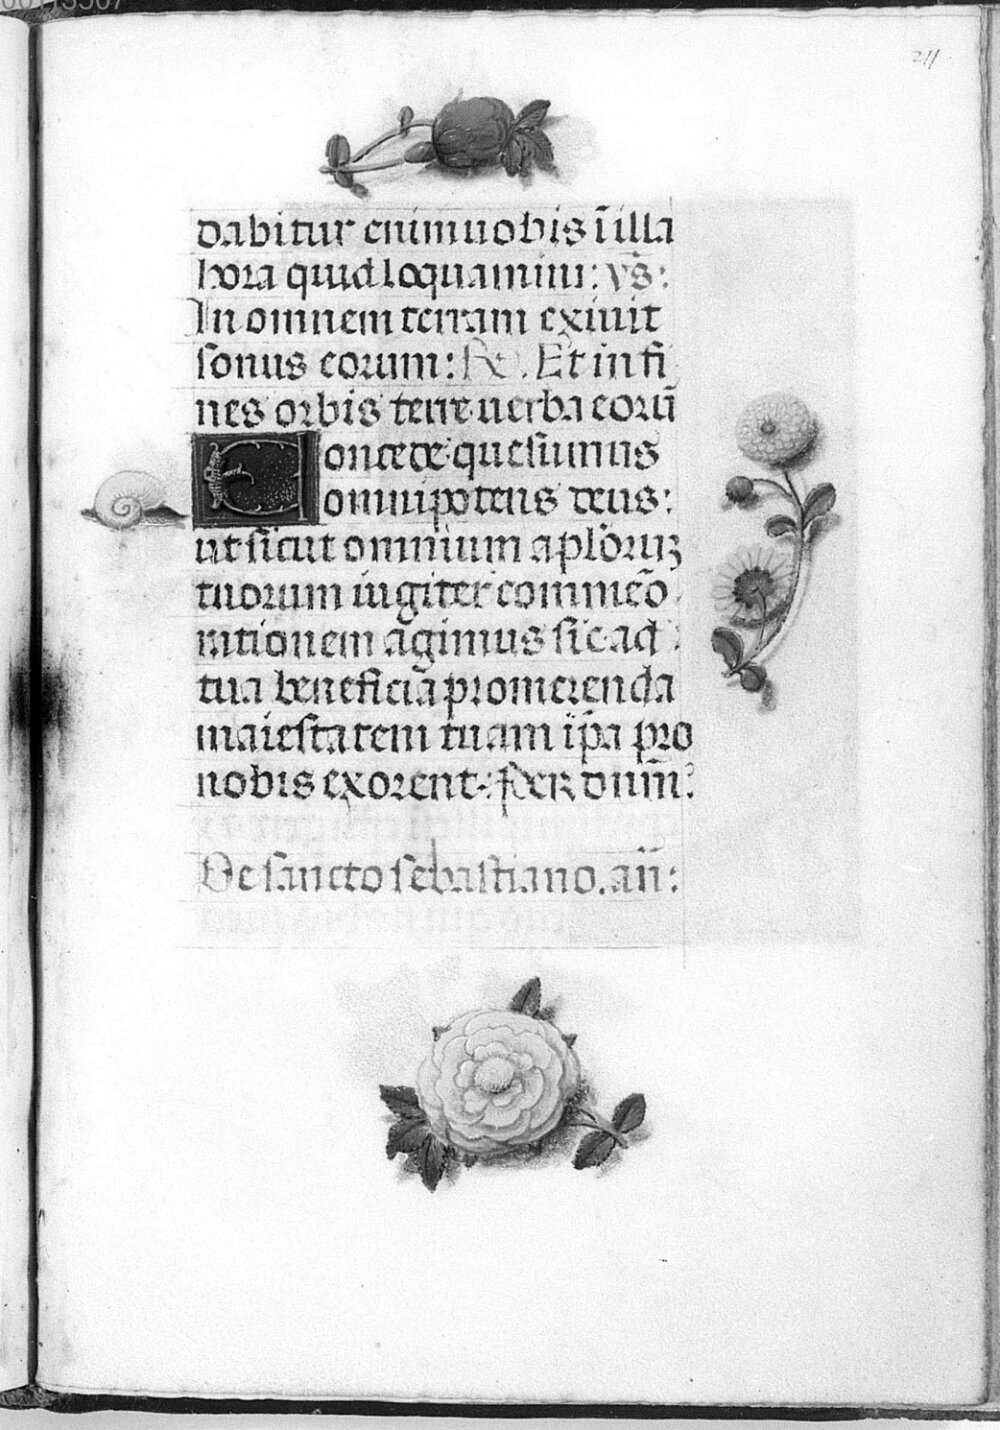 211
dabitur enim uobis ī illa
hora quid loquamini: v̄s:
In omnem terram exiuit
sonus eorum: R̄. Et in fi
nes orbis terre uerba eorū
Concede quesumus
omnipotens deus:
ut sicut omnium aplōruꝫ
tuorum iugiter commeō
rationem agimus sic ad
tua beneficia promerenda
maiestatem tuam ip̄a pro
nobis exorent. Per dnm̄.
De sancto sebastiano. añ: